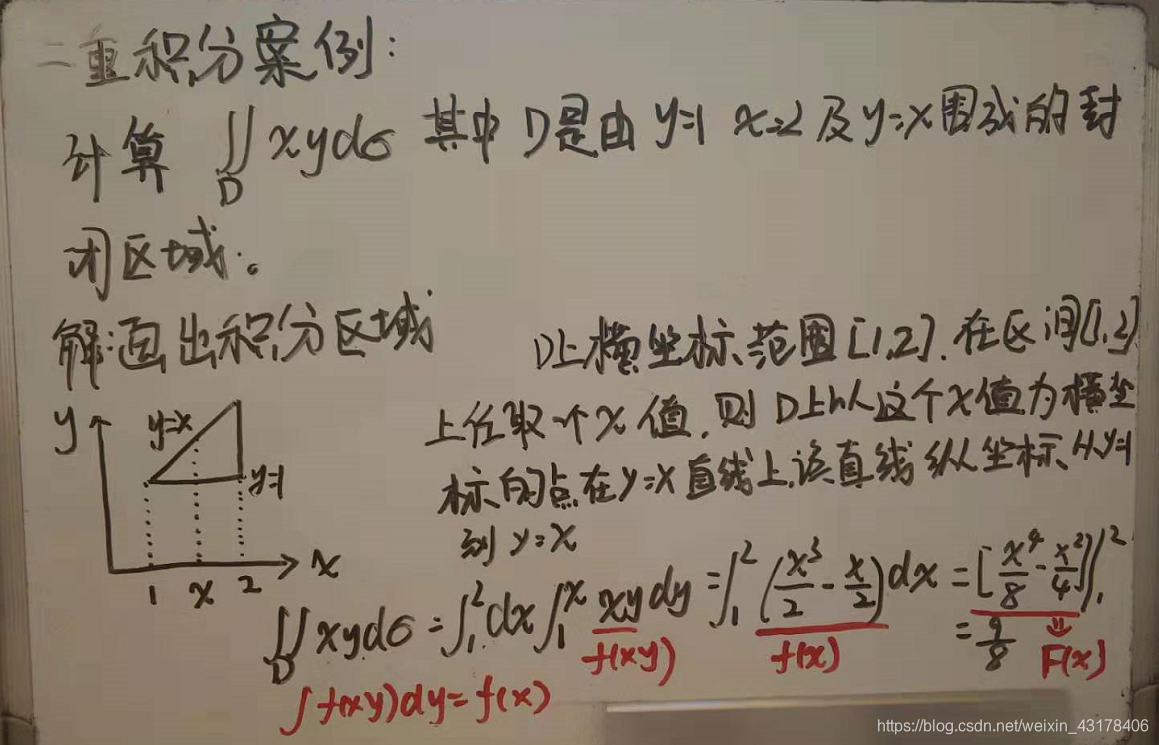 二重积分案例:
计算 ∬_D xydσ 其中 D是由 y=1 x=2 及 y=x围成的封
闭区域。
解:画出积分区域
D上横坐标范围[1,2].在区间[1,2]
上任取个x值,则D上以这个x值为横坐
标的点在y=x直线上,该直线纵坐标从y=1
到 y=x
y
y=x
y=1
x
1 x 2
∬_D xydσ = ∫_1^2 dx ∫_1^x xy dy = ∫_1^2 (x^3/2 - x/2) dx = [x^4/8 - x^2/4]|_1^2
= 9/8
f(xy) f(x) ⇓ F(x)
∫f(xy)dy = f(x)
https://blog.csdn.net/weixin_43178406